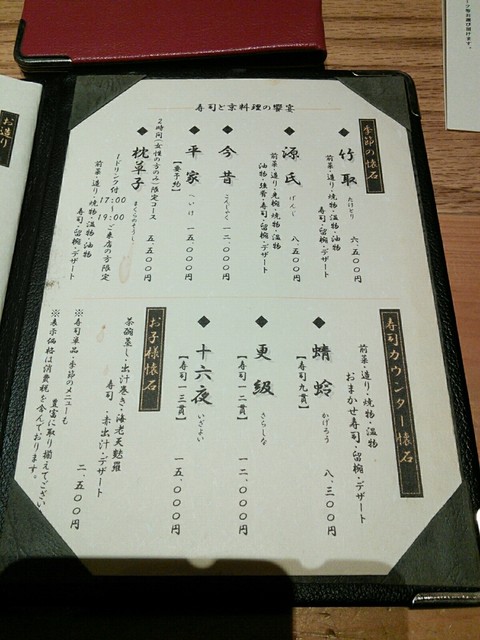 寿司と京料理の饗宴
季節の懐石
◆竹取 たけとり 六、五〇〇円
前菜・造り・焼物・温物・油物
寿司・留椀・デザート
◆源氏 げんじ 八、五〇〇円
前菜・造り・先椀・焼物・温物
油物・強肴・寿司・留椀・デザート
◆今昔 こんじゃく 一二、〇〇〇円
◆平家 へいけ 一五、〇〇〇円
【要予約】
2時間(女性の方のみ)限定コース
◆枕草子 まくらのそうし 五、五〇〇円
1ドリンク付 17:00～19:00ご来店の方限定
前菜・造り・焼物・温物・油物
寿司・留椀・デザート
寿司カウンター懐石
前菜・造り・焼物・温物
おまかせ寿司・留椀・デザート
◆蜻蛉 かげろう 八、三〇〇円
【寿司九貫】
◆更級 さらしな 一二、〇〇〇円
【寿司一二貫】
◆十六夜 いざよい 一五、〇〇〇円
【寿司一三貫】
お子様懐石
茶碗蒸し・出汁巻き・海老天麩羅
寿司・赤出汁・デザート
二、五〇〇円
※寿司単品・季節のメニューも
豊富に取り揃えてござい
※表示価格は消費税を含んでおります。
お造り